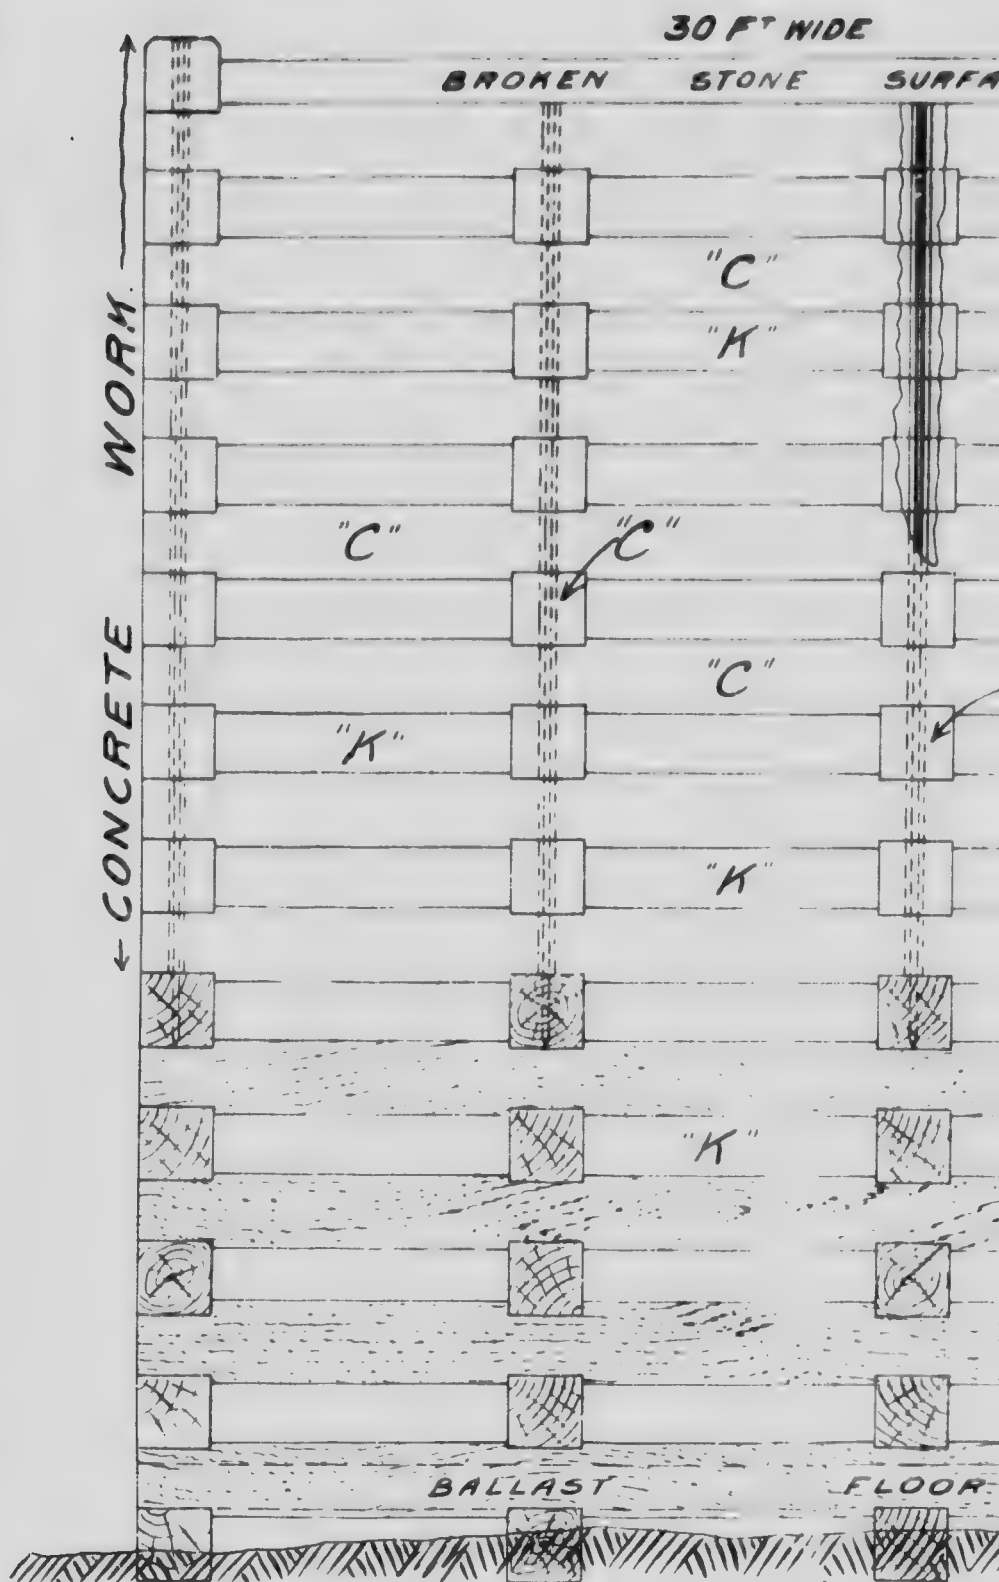 30 FT WIDE
BROKEN STONE SURFA
"C"
"K"
"C" "C"
"C"
"K"
"K"
"K"
BALLAST FLOOR
CONCRETE WORK